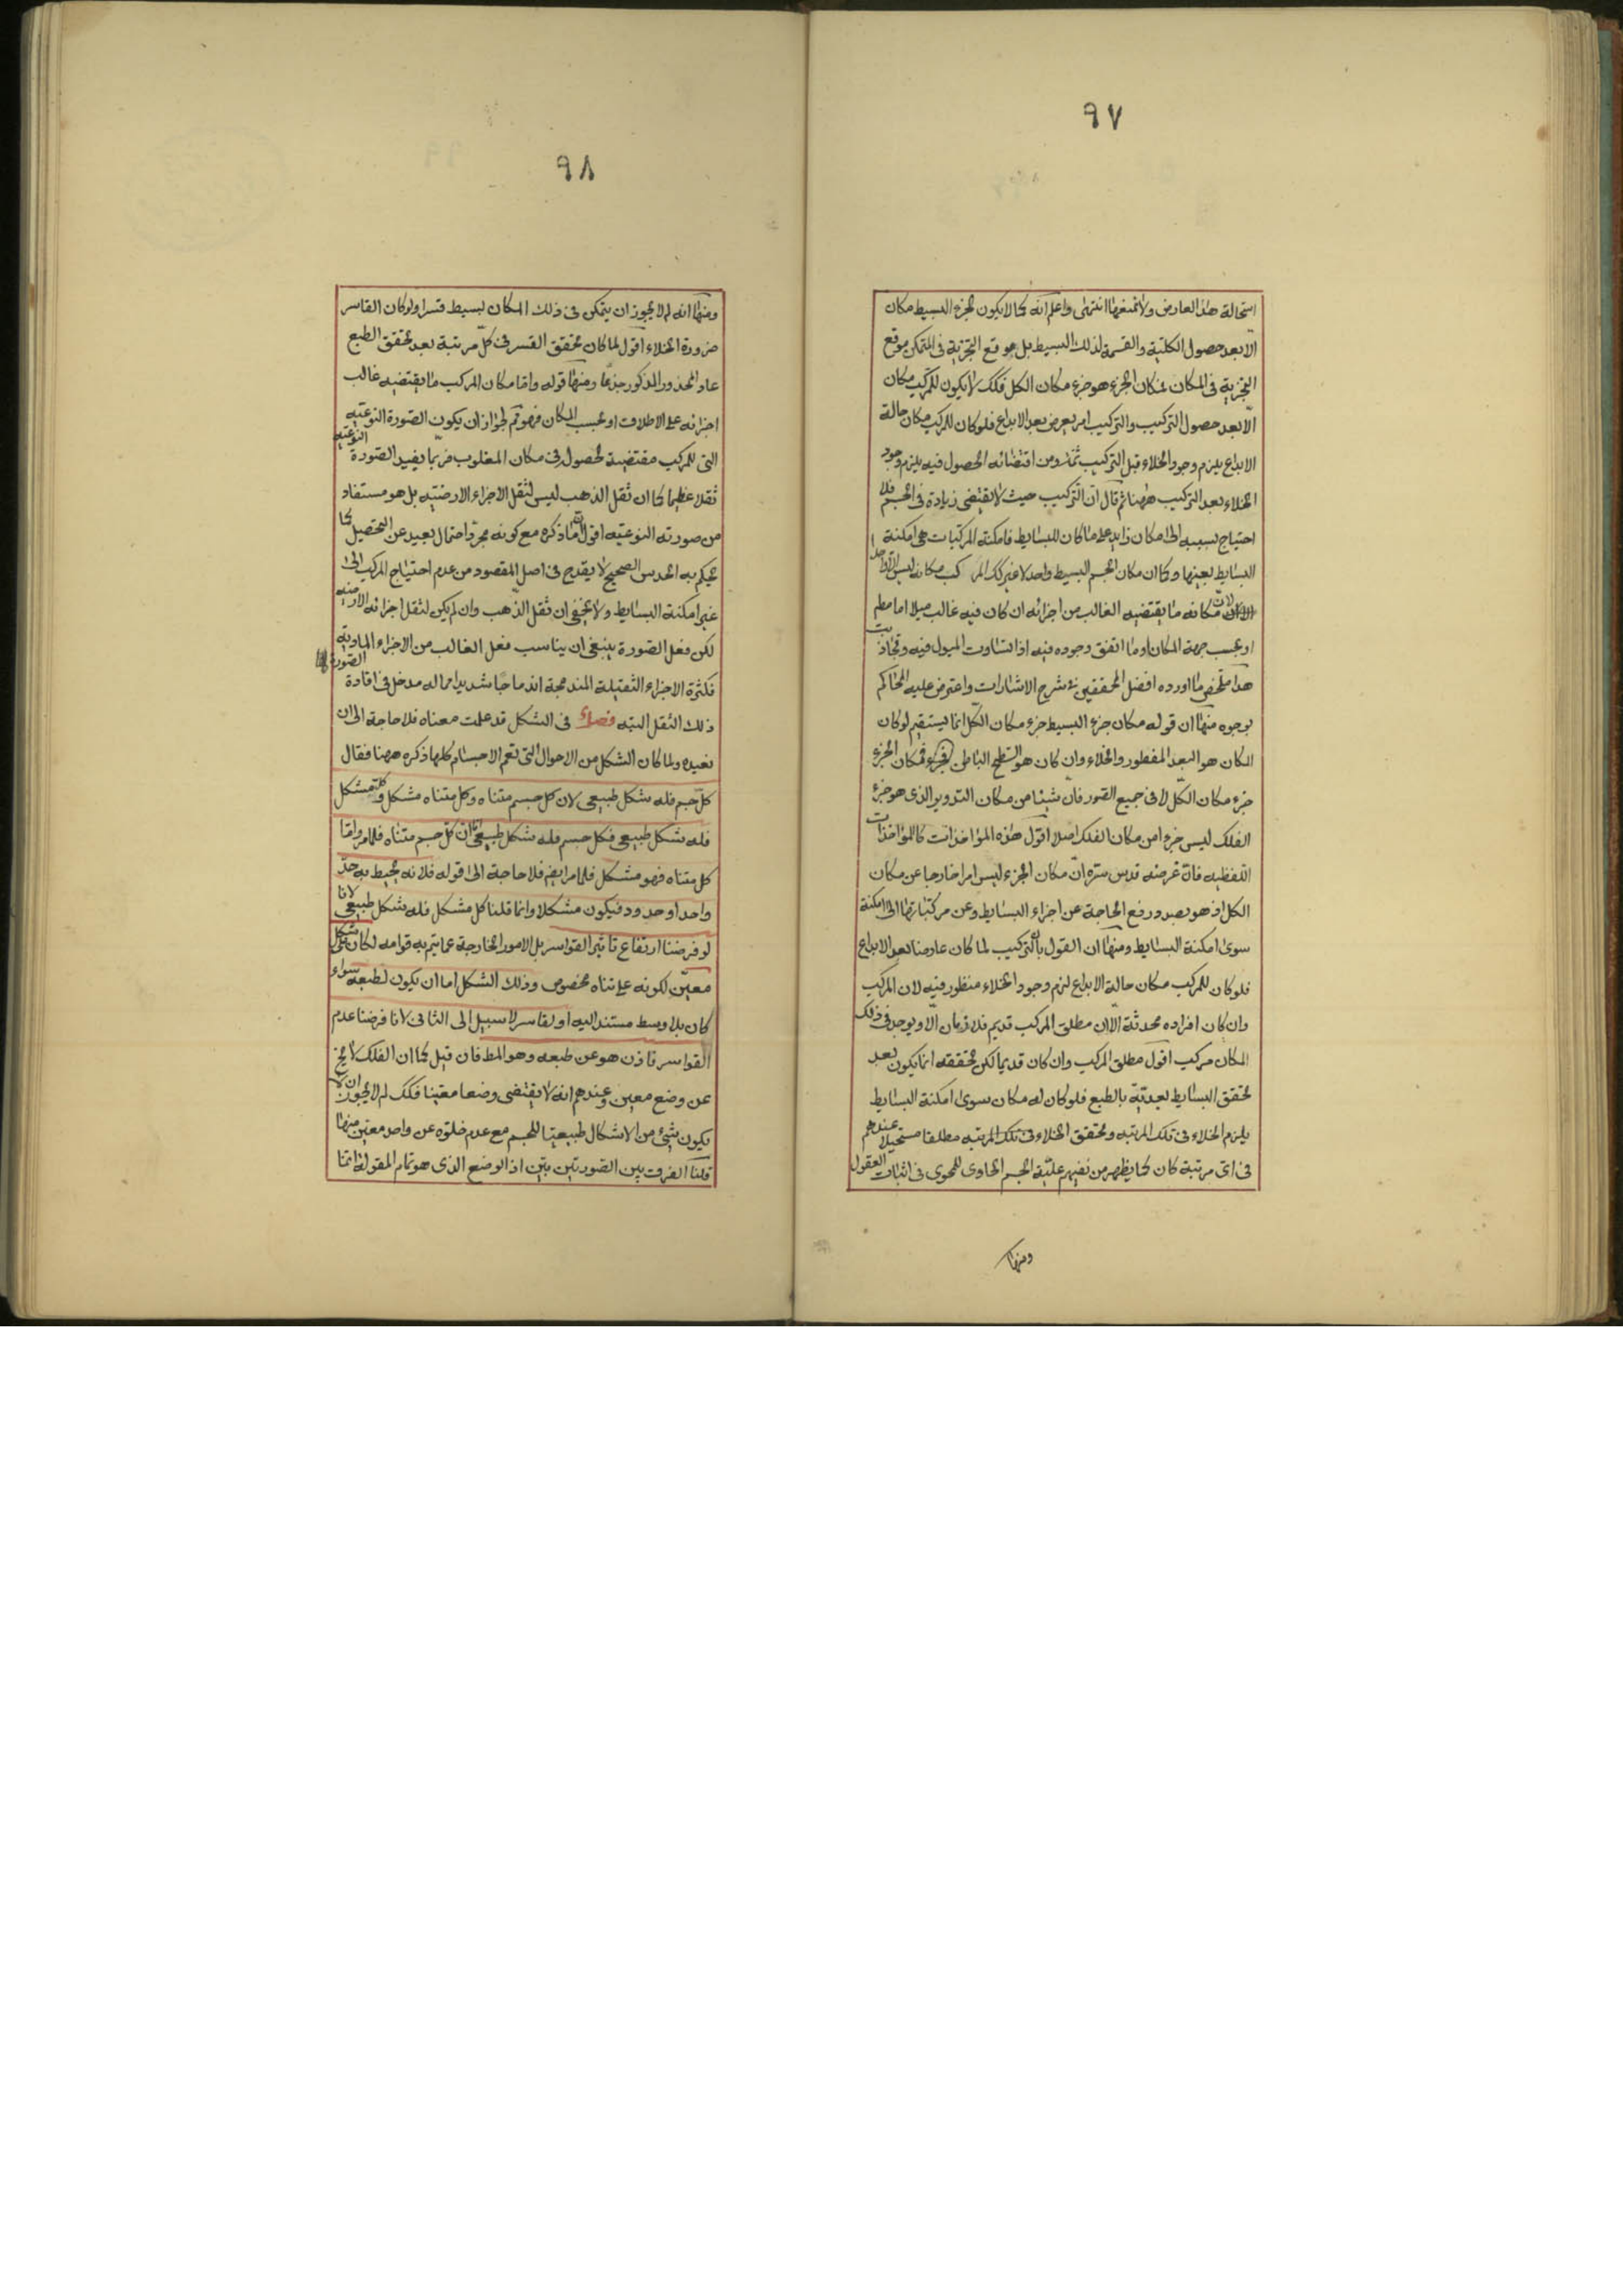 ٩٧
استحالة هذا العارض ولا تمنعها انتهى واعلم انه كما لا يكون لجزء البسيط مكان
الا بعد حصول الكلية والقسمة لذلك البسيط بل موقع التجزية في المتمكن موقع
التجزية في المكان فمكان الجزء هو جزء مكان الكل فكك لا يكون للمركب مكان
الا بعد حصول التركيب والتركيب امر يعرض بعد الابداع فلو كان للمركب مكان حالة
الابداع يلزم وجود الخلاء قبل التركيب ومن اقتضائه الحصول فيه يلزم وجود
الخلاء بعد التركيب ههنا ثم قال ان التركيب حيث لا يقتضي زيادة في الجسم فلا
احتياج بسببه الى مكان زايد على ما كان للبسايط فامكنة المركبات هي امكنة
البسايط بعينها وكما ان مكان الجسم البسيط واحد لا غير كك المركب مكانه ليس الا واحدا
لان مكانه ما يقتضيه الغالب من اجزائه ان كان فيه غالب ميلا اما مطم
او بحسب جهة المكان او ما اتفق وجوده فيه اذا تساوت الميول فيه وتجاذبت
هذا ملخص ما اورده افضل المحققين في شرح الاشارات واعترض عليه المحاكم
بوجوه منها ان قوله مكان جزء البسيط جزء مكان الكل انما يستقيم لو كان
المكان هو البعد المفطور والخلاء وان كان هو السطح الباطن فمكان الجزء
جزء مكان الكل لا في جميع الصور فان شيئا من مكان التدوير الذي هو جزء
الفلك ليس جزءا من مكان الفلك اصلا اقول هذه المؤاخذات كالمؤاخذات
اللفظيه فان غرضه قدس سره ان مكان الجزء ليس امرا خارجا عن مكان
الكل اذ هو بصدد رفع الحاجة عن اجزاء البسايط وعن مركباتها الى امكنة
سوى امكنة البسايط ومنها ان القول بان التركيب لما كان عارضا بعد الابداع
فلو كان للمركب مكان حالة الابداع لزم وجود الخلاء منظور فيه لان المركب
وان كان افراده محدثة الا ان مطلق المركب قديم فلا زمان الا ويوجد في ذلك
المكان مركب اقول مطلق المركب وان كان قديما لكن تحققه انما يكون بعد
تحقق البسايط بعدية بالطبع فلو كان له مكان سوى امكنة البسايط
يلزم الخلاء في تلك المرتبه وتحقق الخلاء في تلك المرتبه مطلقا مستحيل عندهم
في اي مرتبة كان كما يظهر من نفيهم علية الجسم الحاوي للمحوي في اثبات العقول
ومنها
٩٨
ومنها انه لم لا يجوز ان يتمكن في ذلك المكان بسيط قسرا ولو كان القاسر
ضرورة الخلاء اقول لما كان تحقق القسر في كل مرتبة بعد تحقق الطبع
عاد المحذور المذكور جذعا ومنها قوله واما مكان المركب ما يقتضيه غالب
اجزائه على الاطلاق او بحسب المكان فهو مم لجواز ان يكون الصورة النوعيه
التي للمركب مقتضية لحصوله في مكان المغلوب فربما يفيد الصورة النوعيه
ثقلا عظيما كما ان ثقل الذهب ليس لثقل الاجزاء الارضيه بل هو مستفاد
من صورته النوعيه اقول ما ذكره مع كونه مجرد احتمال بعيد عن التحصيل كما
يحكم به الحدس الصحيح لا يقدح في اصل المقصود من عدم احتياج المركب الى
غير امكنة البسايط ولا يخفى ان ثقل الذهب وان لم يكن لثقل اجزائه الارضيه
لكن فعل الصورة ينبغي ان يناسب فعل الغالب من الاجزاء الماديه
فكثرة الاجزاء الثقيلة المندمجة اندماجا شديدا مما له مدخل في افادة الصورة
ذلك الثقل البته فصل في الشكل قد علمت معناه فلا حاجة الى ان
نعيده ولما كان الشكل من الاحوال التي تعم الاجسام كلها ذكره ههنا فقال
كل جسم فله شكل طبيعي لان كل جسم متناه وكل متناه مشكل وكل مشكل
فله شكل طبيعي فكل جسم فله شكل طبيعي اما ان كل جسم متناه فلما مر واما
كل متناه فهو مشكل فلما مر ايضا فلا حاجة الى قوله فلانه يحيط به حد
واحد او حدود فيكون مشكلا وانما قلنا كل مشكل فله شكل طبيعي لانا
لو فرضنا ارتفاع تاثير القواسر بل الامور الخارجة عما يتم به قوامه لكان على شكل
معين لكونه على تناه مخصوص وذلك الشكل اما ان يكون لطبعه سواء
كان بلا وسط مستند اليه او لقاسر لا سبيل الى الثاني لانا فرضنا عدم
القواسر فاذن هو عن طبعه وهو المط فان قيل كما ان الفلك لا يخ
عن وضع معين وعندهم انه لا يقتضي وضعا معينا فكك لم لا يجوز ان لا
يكون شيء من الاشكال طبيعيا للجسم مع عدم خلوه عن واحد معين منها
قلنا الفرق بين الصورتين بين اذ الوضع الذي هو تمام المقولة انما